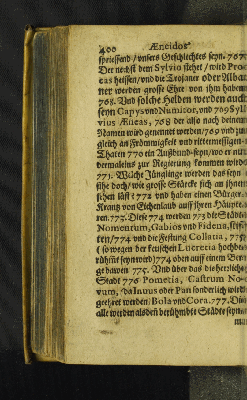 400 Æneidos
spriessend / unsers Geschlechtes seyn. 767.
Der nechst dem Sylvio stehet / wird Pro
cas heissen / und die Trojaner oder Alba
ner werden grosse Ehre von ihm haben
768. Und solche Holden werden auch
seyn Capys und Numitor, und 769 Syl
vius Æneas, 768 der also nach deinem
Namen wird genennet werden / 769 und zu
gleich an Frömmigkeit und rittermessigen
Thaten 770 ein Außbund seyn / wo er nur
dermaleins zur Regierung kommen wird
771. Welche Jünglinge werden das seyn
sihe doch / wie grosse Stärcke sich an ihnen
sehen läst? 772 und haben einen Bürger
Krantz von Eichenlaub auff ihren Häup
ren. 773. Diese 774 werden 773 die Städte
Nomentum, Gabios und Fidena, stiff
ten / 774 und die Festung Collatia, 775
(so wegen der keuschen Lucreria hochbe
rühmt seyn werd) 774 oben auff einem Ber
ge bawen 775. Und über das die herzliche
Stadt 776 Pometia, Castrum No
vum, da Inuus oder Pan sonderlich wird
geehret werden. Bola und Cora. 777. Dis
alle werden alsdeñ berühmbte Städte seyn